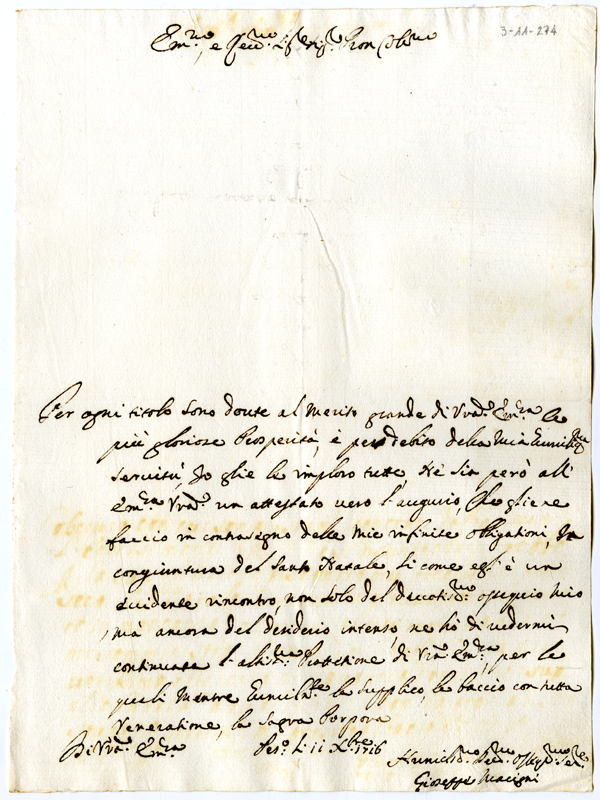 3-11-274
Em.mo, e Rev.mo Sig.r Sig.r Pron Col.mo
Per ogni titolo sono dovute al merito grande di Vra Em.za le
più gloriose Prosperità, è per debito della mia Humiliss.ma
servitù Io glie le imploro tutte, Ne sia però all'
Em.za Vra un attestato vero l'augurio, che gliene
faccio in contrasegno delle mie infinite obligationi, In
congiuntura del Santo Natale, si come egli è un
evidente rincontro, non solo del devotis.mo ossequio mio
mà ancora del desiderio intenso, ne hò di vedermi
continuata l'altis.ma Protettione di Vra Em.za, per le
quali mentre humilm.te la supplico, le baccio con tutta
Veneratione, la Sagra Porpora
Di Vra Em.za
Pes.o li 11 Xbre 1716
Humiliss.mo Dev.mo Osseq.mo Ser.re
Gioseppe Macigni